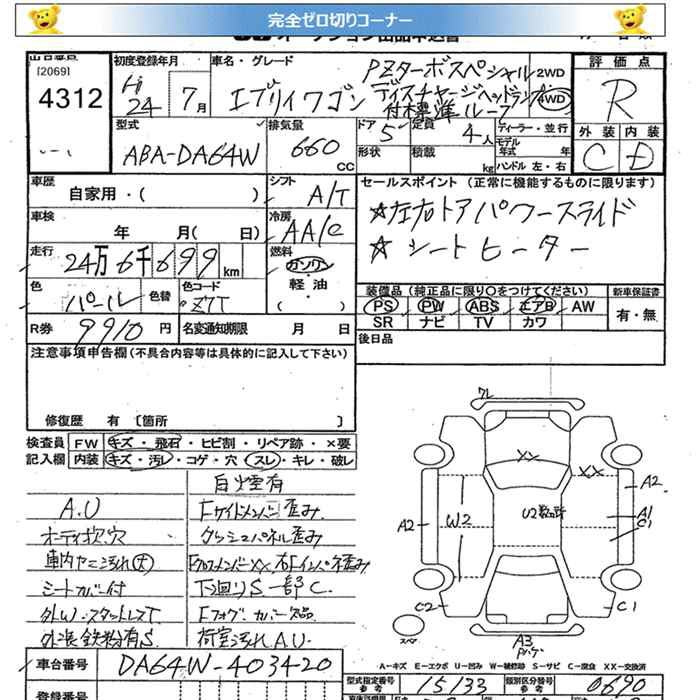 完全ゼロ切りコーナー
出品番号 初度登録年月 車名・グレード 評価点
[2069] PZターボスペシャル 2WD
4312 H24 7月 エブリイワゴン ディスチャージヘッドランプ 4WD R
付標準ルーフ
型式 排気量 ドア 5 定員 4人 ディーラー・並行 外装 内装
ABA-DA64W 660 CC 形状 積載 kg モデル年式 年 C D
ハンドル 左・右
車歴 自家用・( ) シフト A/T セールスポイント (正常に機能するものに限ります)
車検 年 月( 日) 冷房 AA/C ☆左右ドアパワースライド
走行 24万6千699km 燃料 ガソリン ☆シートヒーター
軽油
( )
色 パール 色替 色コード Z7T 装備品 (純正品に限り〇をつけてください) 新車保証書
PS PW ABS エアB AW 有・無
R券 9910円 名変通知期限 月 日 SR ナビ TV カワ
注意事項申告欄(不具合内容等は具体的に記入して下さい) 後日品
修復歴 有 [箇所 ]
検査員 FW キズ・飛石・ヒビ割・リペア跡・×要
記入欄 内装 キズ・汚レ・コゲ・穴・スレ・キレ・破レ
自煙有
A.U Fサイドメンバー歪み
オーディオ欠穴 ダッシュパネル歪み
車内ヤニ汚れ(大) FクロスメンバーXX 右Fインパネ歪み
シートカバー付 下廻りS一部C.
外W・スタットレスT Fフォグカバー欠品
外装鉄粉有S. 荷室汚れA.U.
ワレ
XX XX
A2 W2 U2数ヶ所 A2 A1 C1
C2 C1
スペア A3
A-キズ E-エクボ U-凹み W-補修跡 S-サビ C-腐食 XX-交換済
車台番号 DA64W-403420 型式指定番号 参考 15133 類別区分番号 参考 0690
登録番号